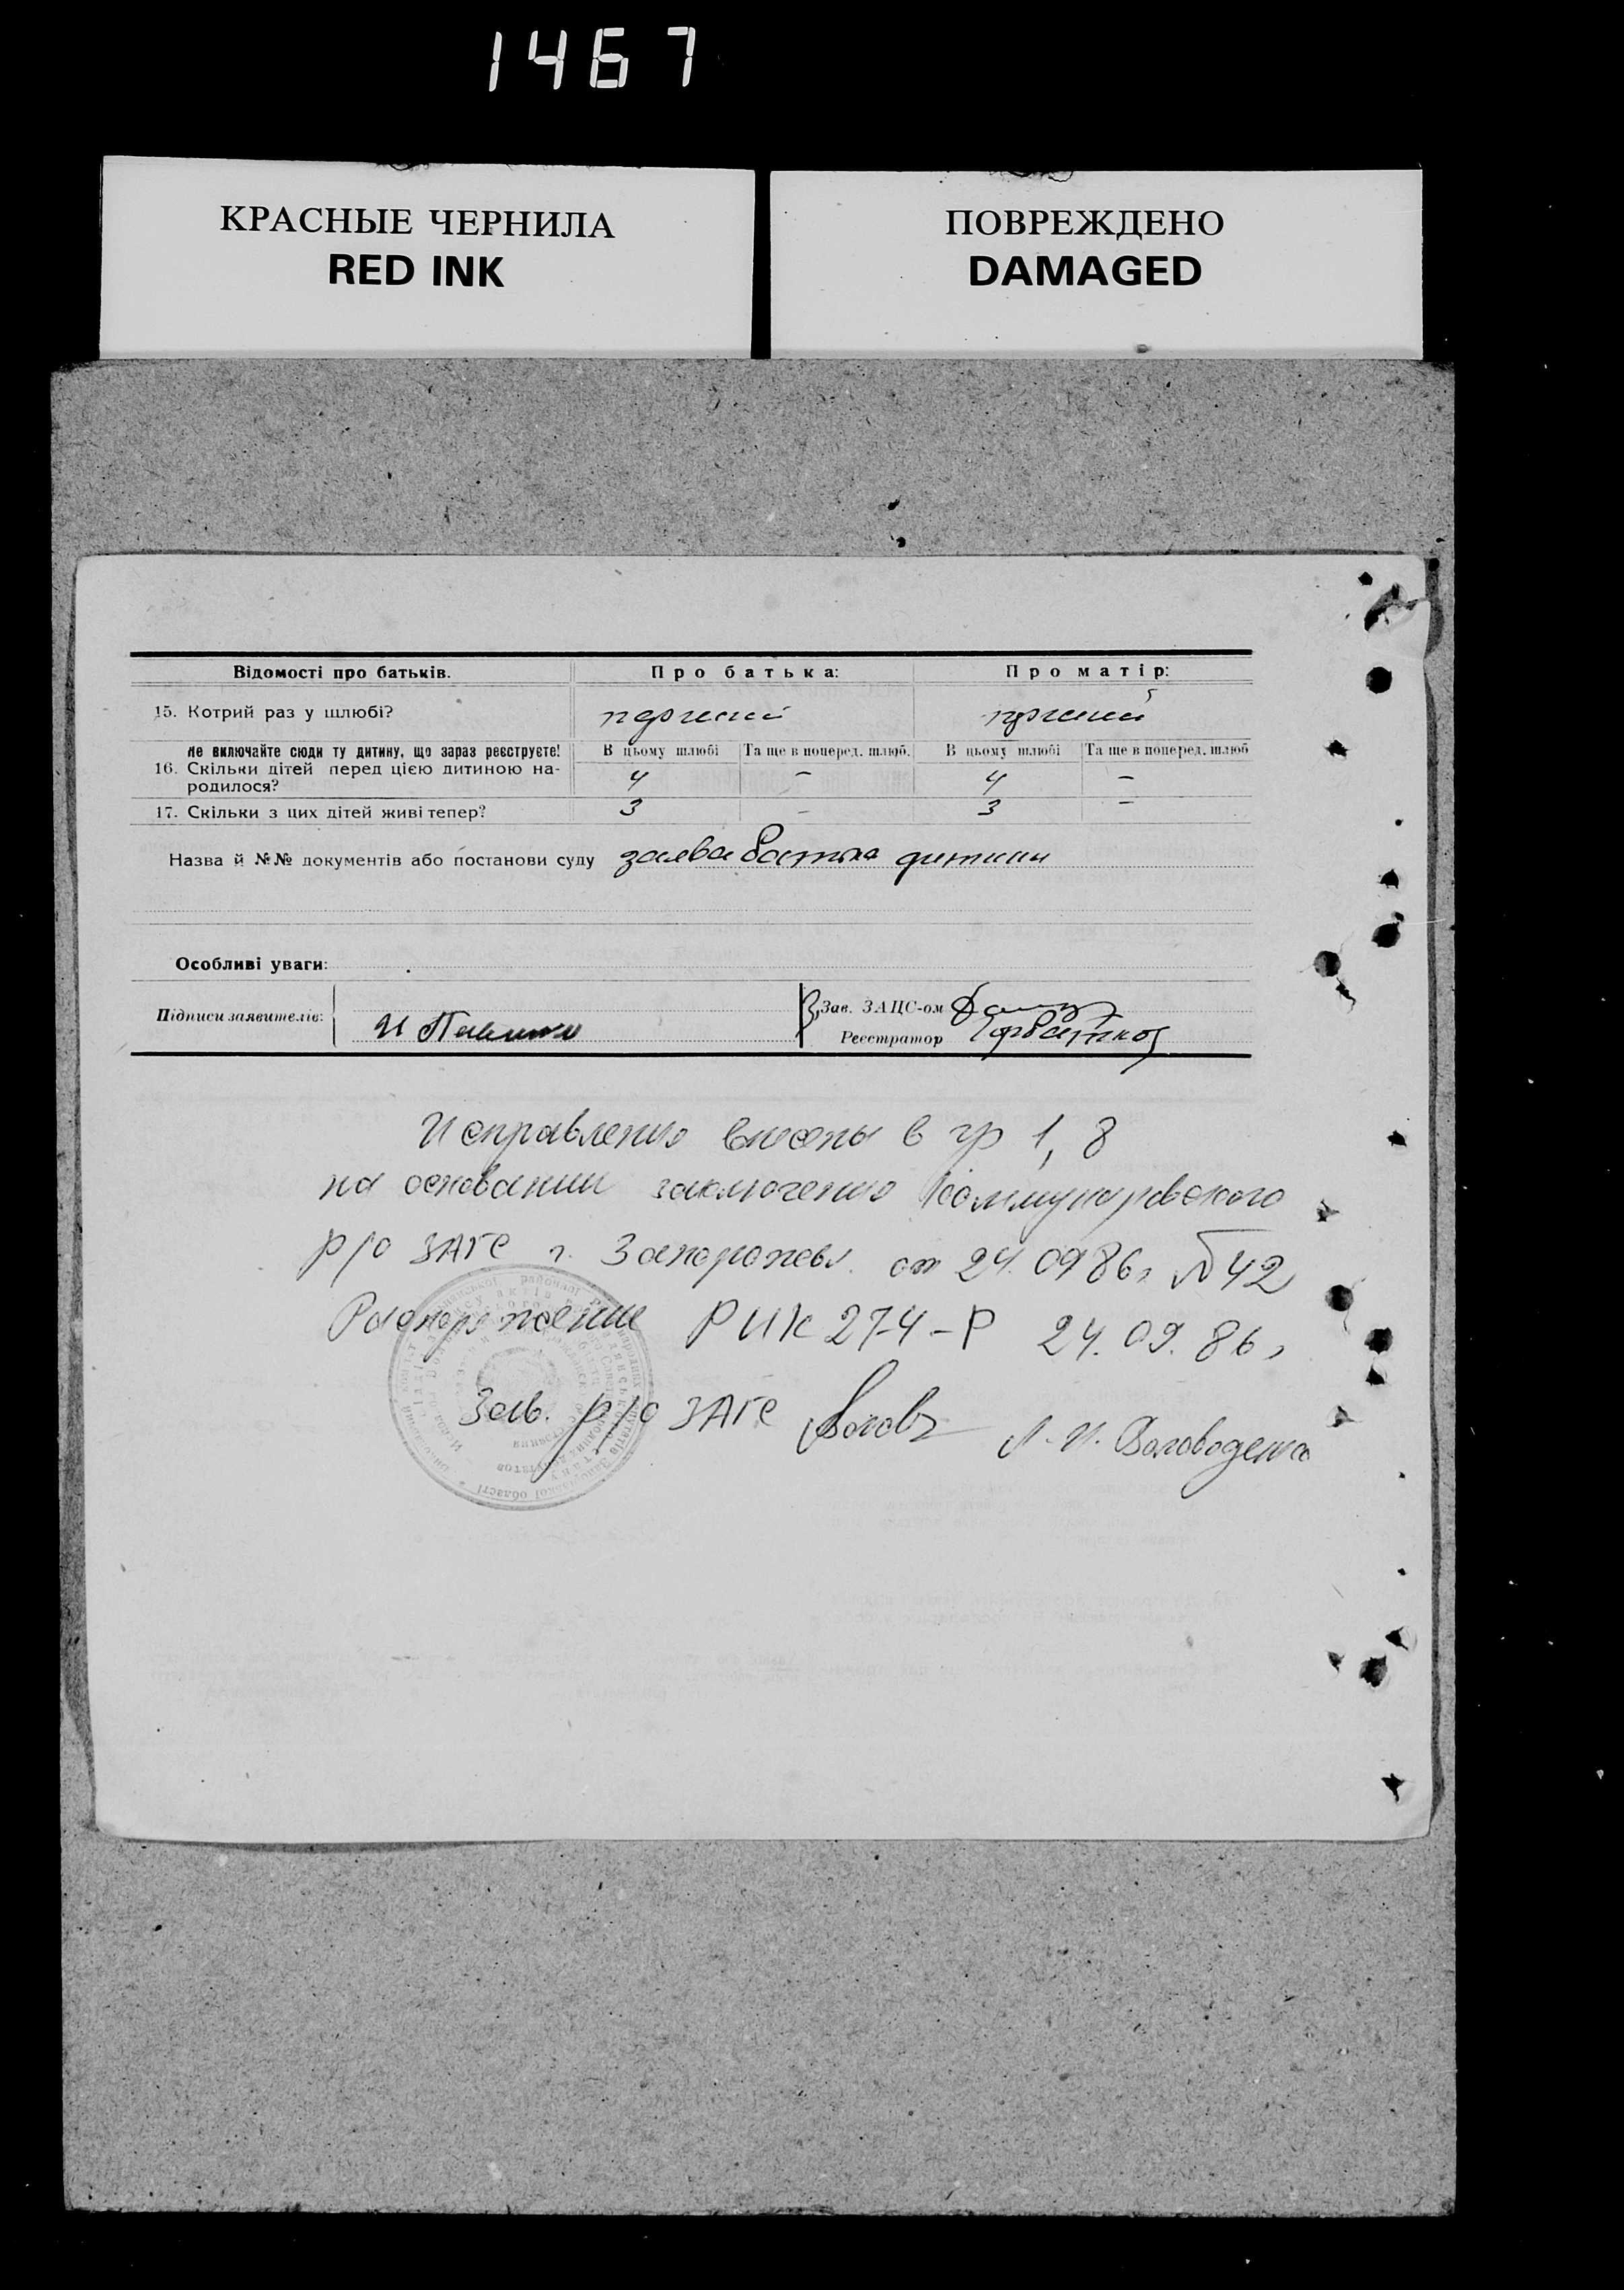 1467
КРАСНЫЕ ЧЕРНИЛА
RED INK
ПОВРЕЖДЕНО
DAMAGED
Відомості про батьків. Про батька: Про матір:
15. Котрий раз у шлюбі? первений первений
Не включайте сюди ту дитину, що зараз реєструєте! В цьому шлюбі Та ще в поперед. шлюб. В цьому шлюбі Та ще в поперед. шлюб
16. Скільки дітей перед цією дитиною на-
родилося? 4 – 4 –
17. Скільки з цих дітей живі тепер? 3 – 3 –
Назва й №№ документів або постанови суду заява батька дитини
Особливі уваги:
Підписи заявителів: Зав. ЗАЦС-ом
Реєстратор
Исправления внесены в гр 1, 8
на основании заключения Коммунаровского
р/о ЗАГС г. Запорожья от 24.09 86г №42
Распоряжение РИК 274-Р 24.09.86г
Зав. р/о ЗАГС Л.И. Воловоденко